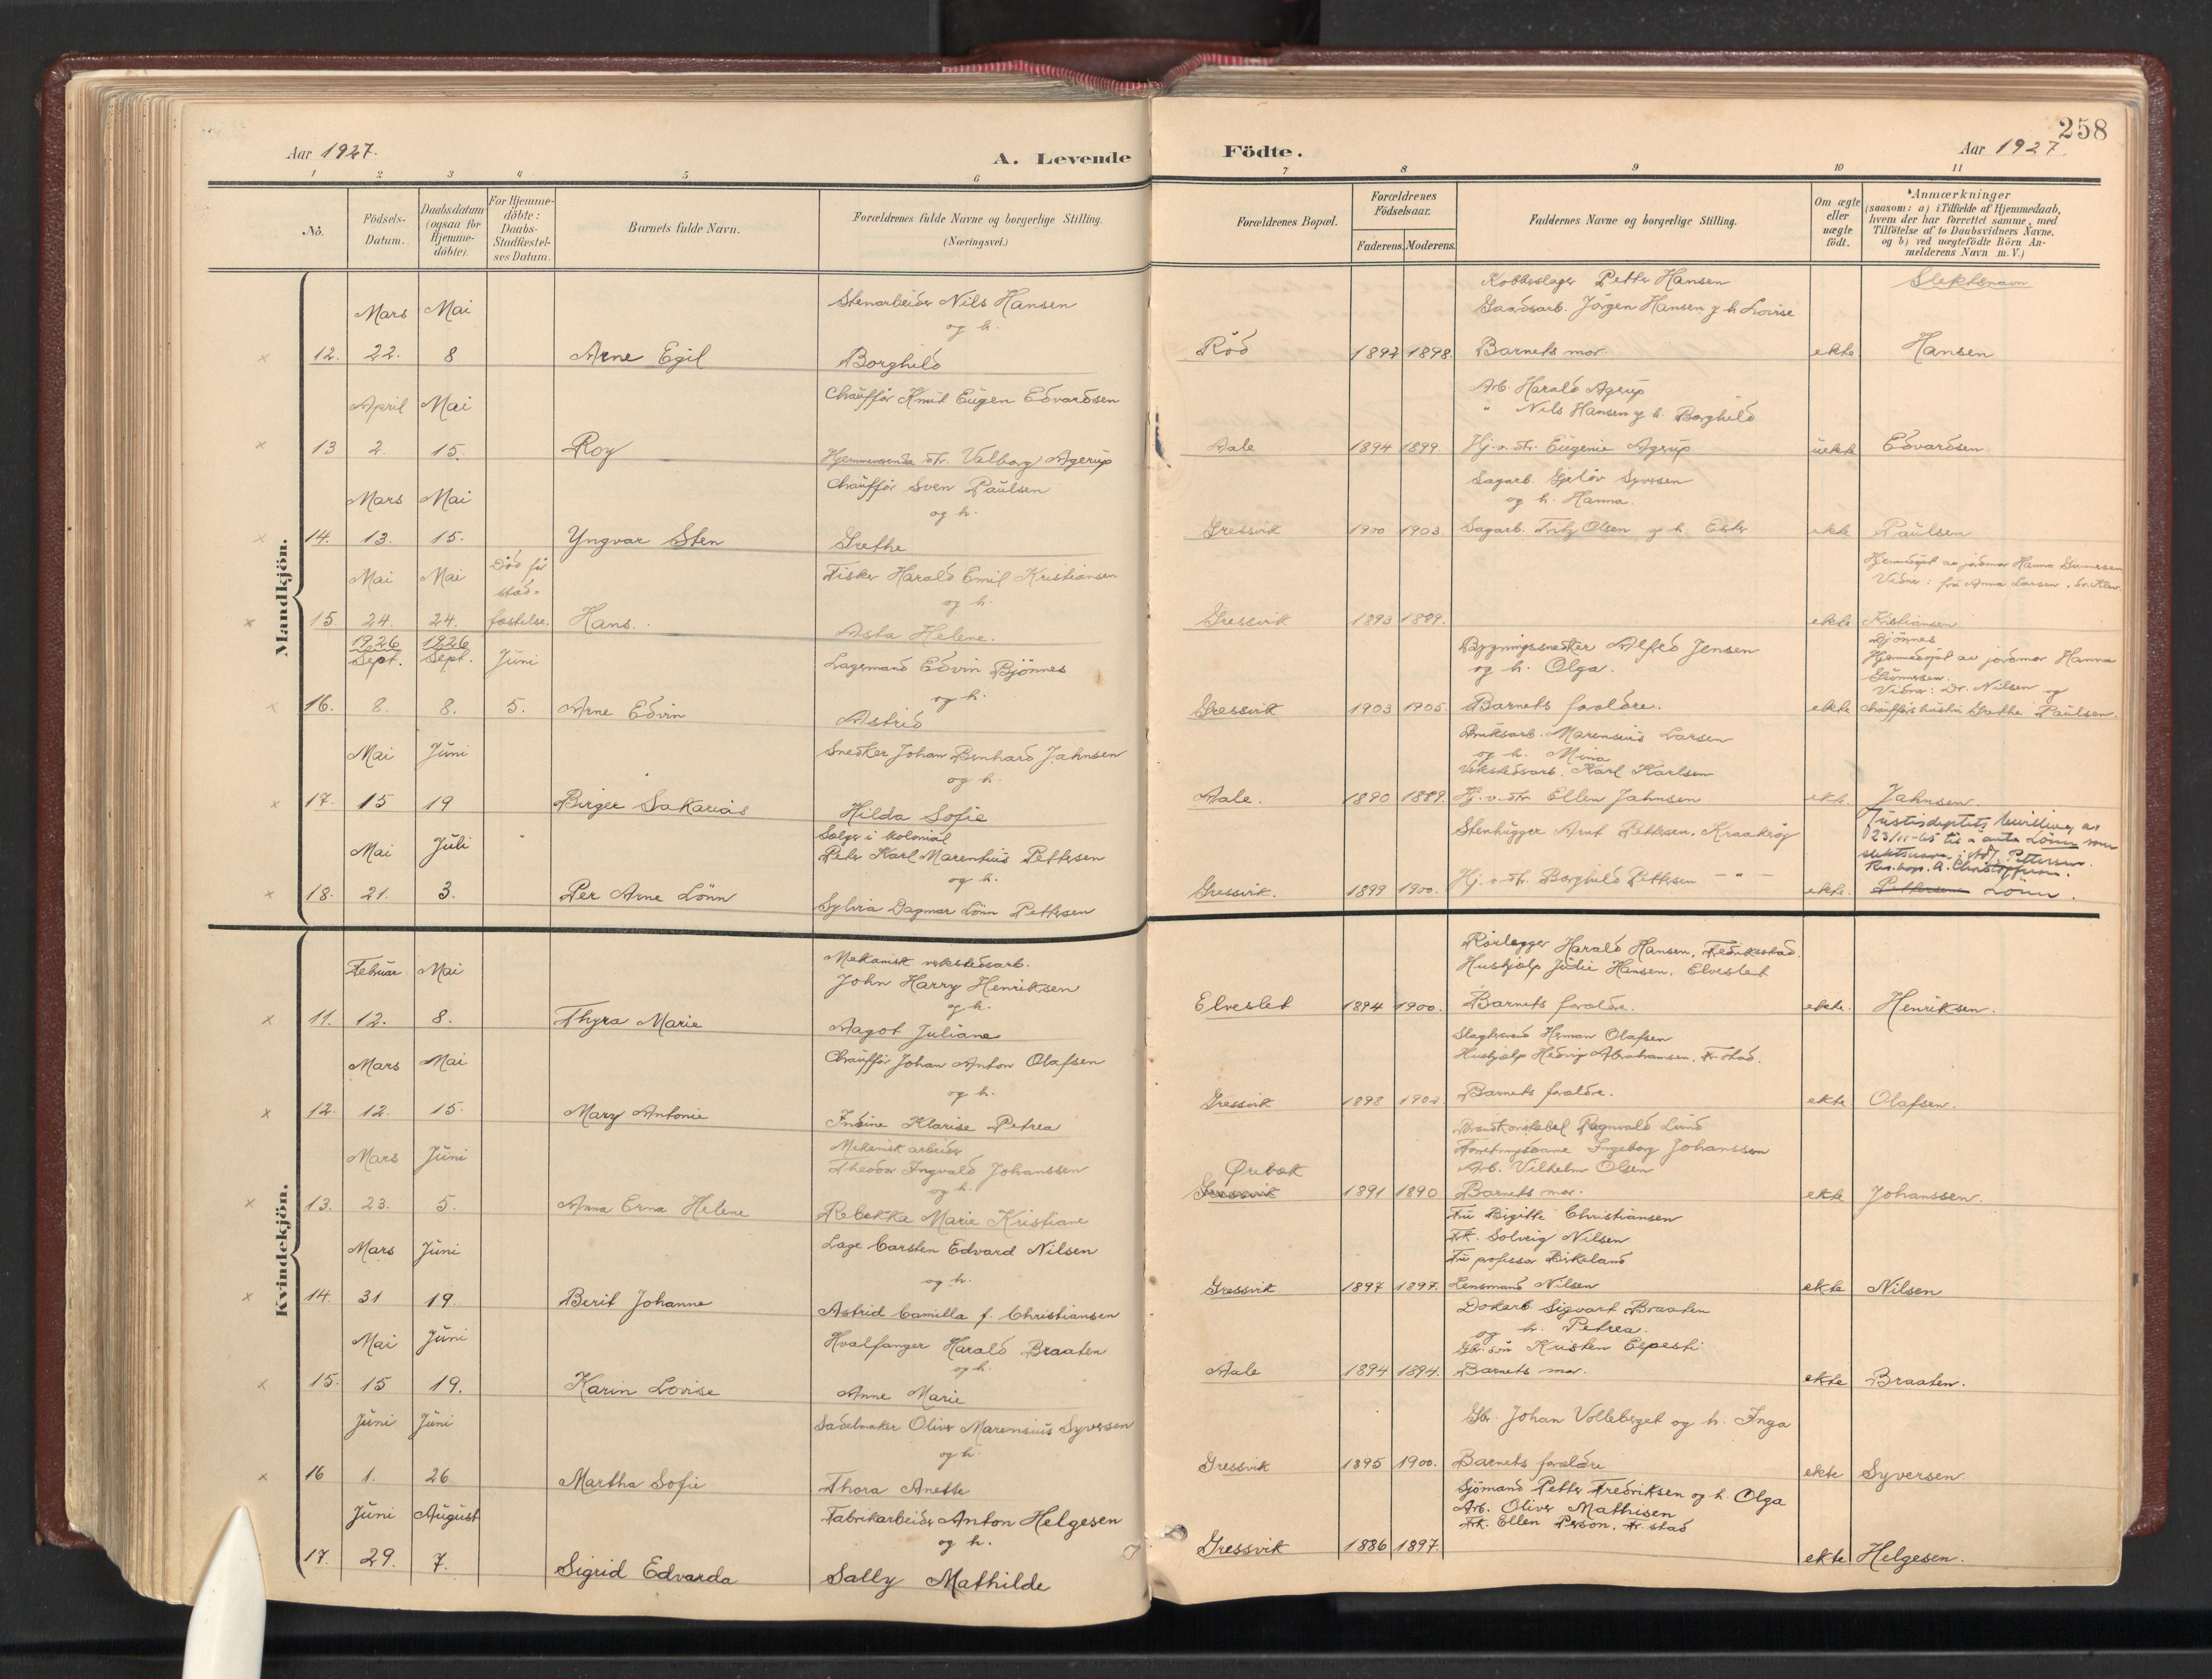 258
Aar 1927.
A. Levende
Fødte.
Aar 1927.
1 2 3 4 5 6 7 8 9 10 11
No.
Födsels-Datum.
Daabsdatum (ogsaa for Hjemme-döbte).
For Hjemme-döbte: Daabs-Stadfæstel-ses Datum.
Barnets fulde Navn.
Forældrenes fulde Navne og borgerlige Stilling. (Næringsvei.)
Forældrenes Bopæl.
Forældrenes Födselsaar.
Faderens. Moderens.
Faddernes Navne og borgerlige Stilling.
Om ægte eller uægte födt.
Anmærkninger
(saasom: a) i Tilfælde af Hjemmedaab,
hvem der har forrettet samme, med
Tilföielse af to Daabsvidners Navne.
og b) ved uægtefödte Börn An-
melderens Navn m. V.)
Mandkjön.
Stenarbeider Nils Hansen
Kobberslager Petter Hansen
Slektsnavn
Mars Mai
og h.
Jörgen Hansen g h Lovise
12. 22. 8 Arne Egil Borghild Röd 1892 1898. Barnets mor. ekte Hansen
April Mai
Chauffør Knut Eugen Edvardsen
Arb. Harald Agerup
" Nils Hansen g h. Borghild
13 2. 15. Roy Hjemmeværende dtr. Valborg Agerup Aale 1894 1899. Hj. v. dtr. Eugenie Agerup uekte Edvardsen.
Mars Mai
Chauffør Sven Paulsen
og h.
Sagarb. Syversen
og h. Hanna.
14. 13. 15. Yngvar Sten Grethe Gressvik 1900 1903. Sagarb. Fritz Olsen g h Ester ekte Paulsen
Mai Mai
Död før stad-
Fisker Harald Emil Kristiansen
og h.
Hjemmedöpt av jordmor Hanna Gunnersen
Vidner: fru Anna Larsen,
15. 24. 24. festelse. Hans. Asta Helene. Gressvik 1893 1889. ekte Kristiansen
1926 1926
Sept. Sept. Juni
Lagermand Edvin Bjönnes
og h.
Bygningssnedker Alfred Jensen
og h. Olga.
Bjönnes
Hjemmedöpt av jordmor Hanna
Gunnersen.
Vidner: Dr. Nilsen og
16. 8. 8. 5. Arne Edvin Astrid Gressvik 1903 1905. Barnets foreldre. ekte chaufførs hustru Grethe Paulsen.
Mai Juni
Snedker Johan Bernhard Jahnsen
og h.
Bruksarb. Marensius Larsen
og h. Mina
Verkstedsarb. Karl Karlsen
17. 15 19 Birger Sakarias Hilda Sofie Aale. 1890 1889. Hj. v. dtr. Ellen Jahnsen ekte. Jahnsen.
Mai Juli
Selger i kolonial
Peter Karl Marentius Pettersen
og h.
Stenhugger Arnt Pettersen, Kraakerøy
Justisdeptets bevilling av
23/11-45 til å anta Lönn som
slektsnavn, istdf. Pettersen.
Res. kap. A. Christoffersen.
18. 21. 3. Per Arne Lönn Sylvia Dagmar Lönn Pettersen Gressvik. 1899 1900. Hj. v. dtr. Borghild Pettersen - " - ekte. Pettersen Lönn.
Kvindekjön.
Februar Mai
Mekanisk verkstedsarb.
John Harry Henriksen
og h.
Rörlegger Harald Hansen, Fredriksstad.
Hushjelp Julie Hansen, Elveslet
11. 12. 8. Thyra Marie Aagot Juliane Elveslet 1894 1900. Barnets foreldre. ekte. Henriksen.
Mars Mai
Chauffør Johan Anton Olafsen
og h.
Slagtersvend Herman Olafsen
Hushjelp Hedvig Abrahamsen, Fr.stad.
12. 12. 15. Mary Antonie Indine Klarise Petrea Gressvik 1898 1902. Barnets foreldre. ekte Olafsen.
Mars Juni
Mekanisk arbeider
Theodor Ingvald Johanssen
og h.
Brandkonstabel Ragnvald Lund
Ingeborg Johanssen
Arb. Vilhelm Olsen
Örebæk
13. 23. 5. Anna Erna Helene Rebekka Marie Kristiane Gressvik 1891 1890 Barnets mor. ekte Johanssen.
Mars Juni
Læge Carsten Edvard Nilsen
og h.
Fru Birgitte Christiansen
Frk. Solveig Nilsen
Fru professor Birkeland
14. 31 19. Berit Johanne Astrid Camilla f. Christiansen Gressvik 1897 1897. Lensmand Nilsen ekte Nilsen
Mai Juni
Hvalfanger Harald Braaten
og h.
Dokarb. Sigvart Braaten
og h. Petrea.
Gbr. sön Kristen Espesti
15. 15 19. Karin Lovise Anne Marie Aale 1894 1894. Barnets mor. ekte Braaten.
Juni Juni
Sadelmaker Oliver Marensius Syversen
og h.
Gbr. Johan Volleberget og h. Inga
16 1. 26 Martha Sofie Thora Anette Gressvik 1895 1900. Barnets foreldre ekte Syversen.
Juni August
Fabrikarbeider Anton Helgesen
og h.
Sjömand Petter Fredriksen og h. Olga
Arb. Oliver Mathisen
Frk. Ellen Person. Fr.stad
17. 29. 7. Sigrid Edvarda Sally Mathilde Gressvik 1886 1897. ekte Helgesen.